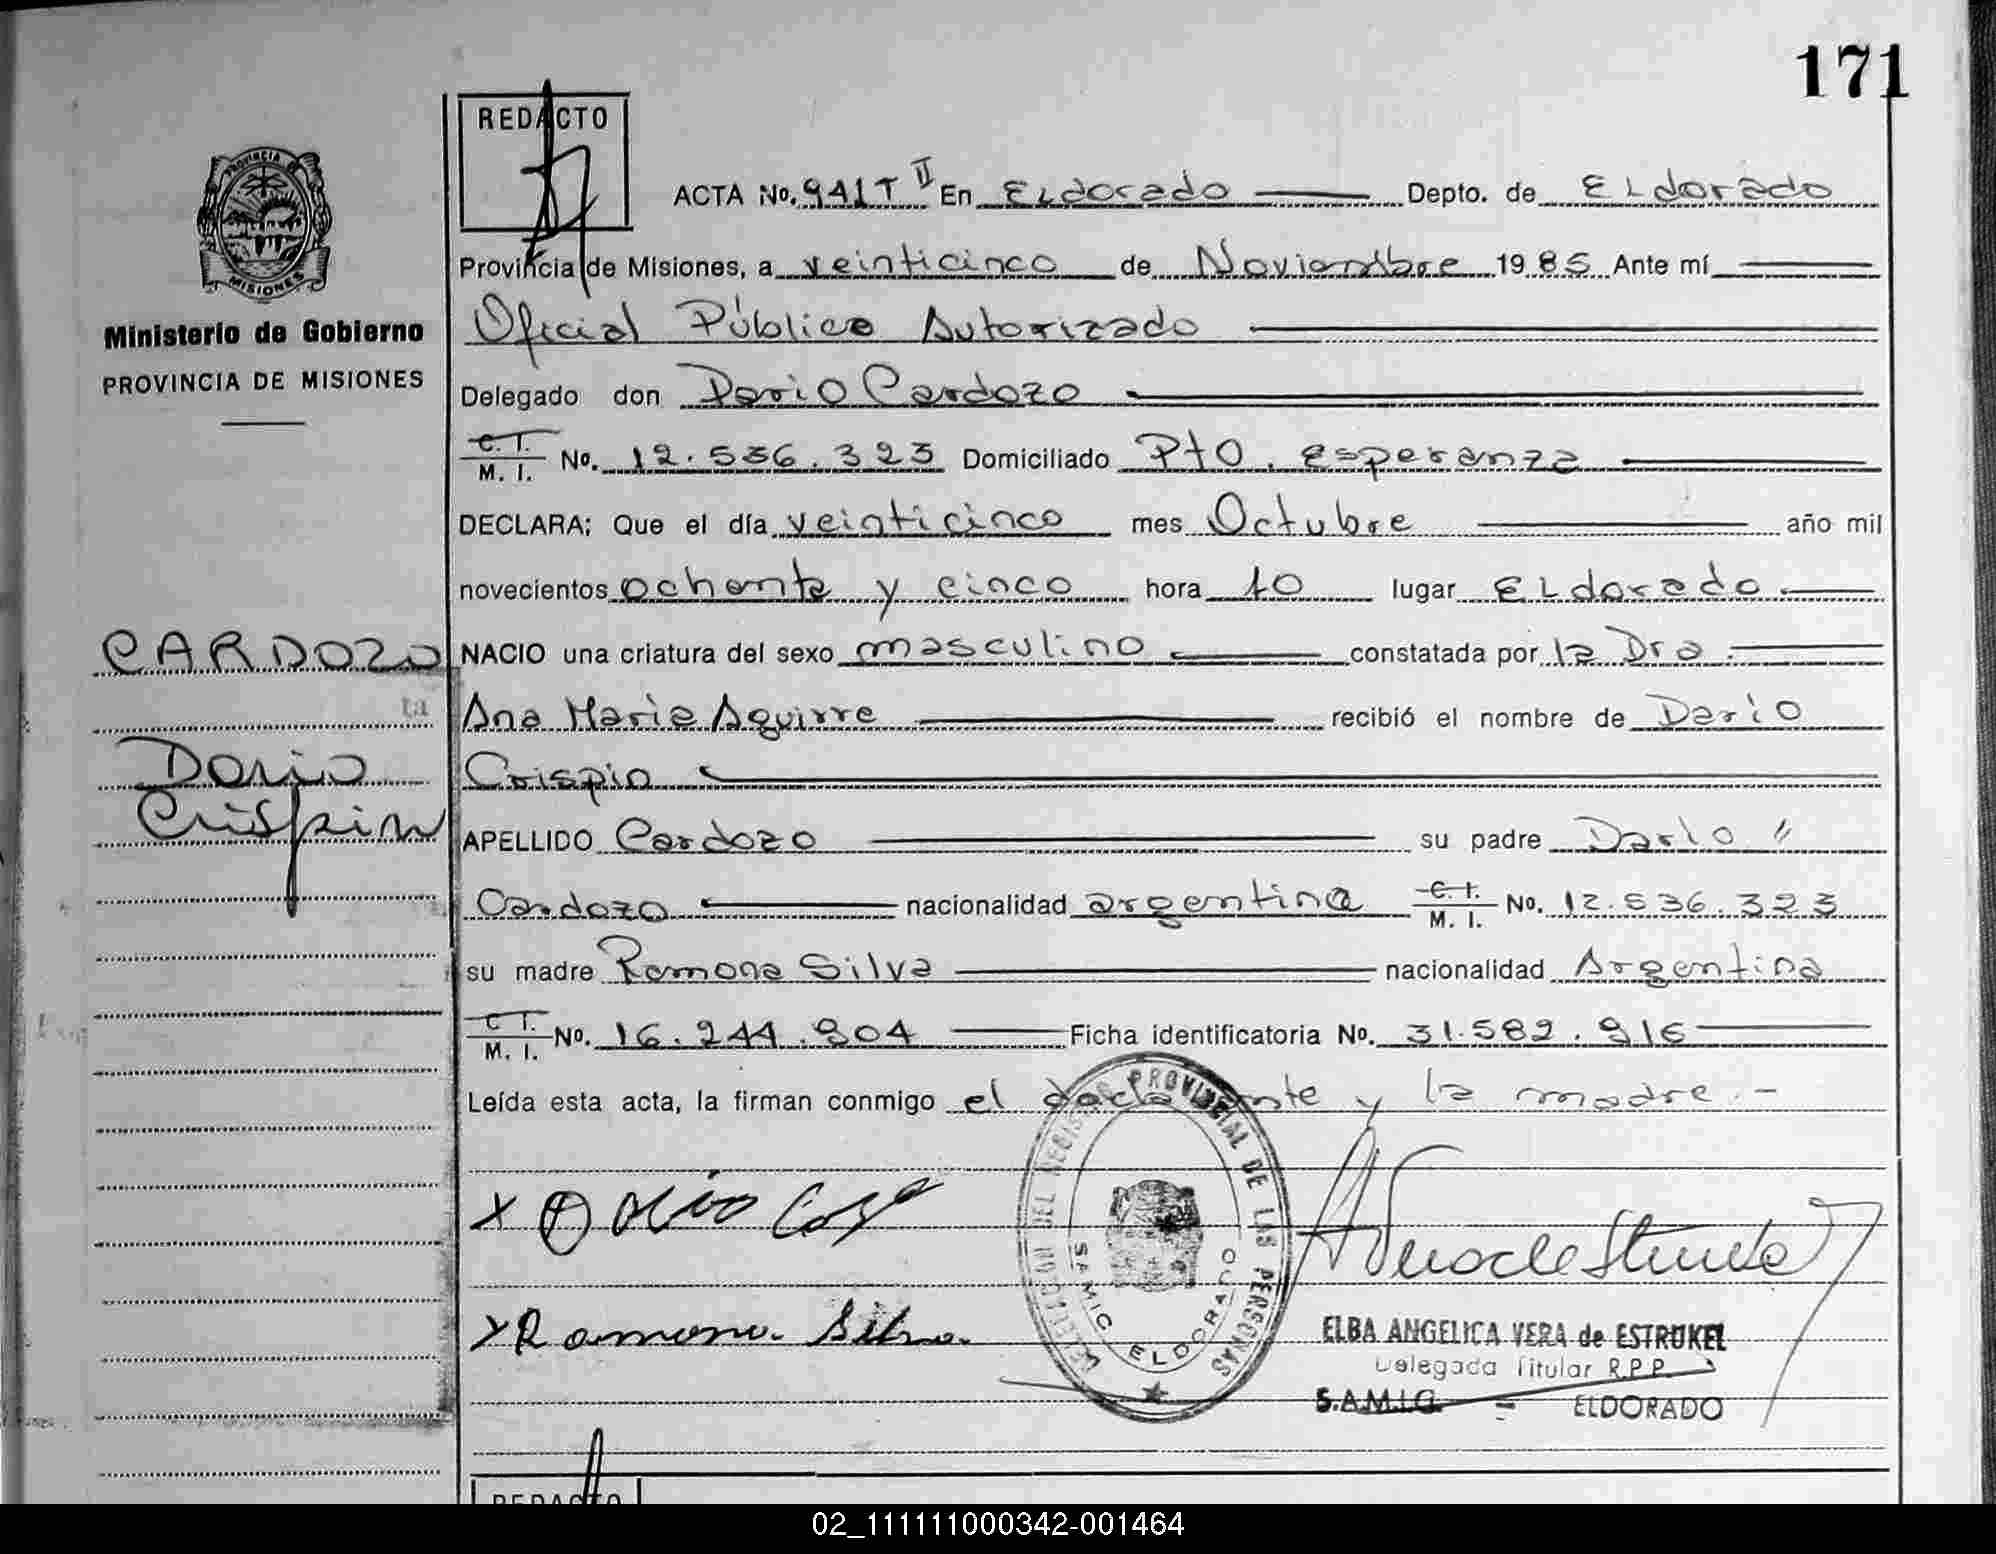 171
REDACTO
ACTA No. 941 T II En Eldorado Depto. de Eldorado
Provincia de Misiones, a veinticinco de Noviembre 1985 Ante mí
Oficial Público Autorizado
Delegado don Dario Cardozo
C. I. M. I. No. 12.536.323 Domiciliado Pto. Esperanza
DECLARA; Que el día veinticinco mes Octubre año mil
novecientos ochenta y cinco hora 10 lugar Eldorado
NACIO una criatura del sexo masculino constatada por la Dra.
Ana Maria Aguirre recibió el nombre de Dario
Crispin
APELLIDO Cardozo su padre Dario
Cardozo nacionalidad argentina C. I. M. I. No. 12.536.323
su madre Ramona Silva nacionalidad Argentina
C. I. M. I. No. 16.244.904 Ficha identificatoria No. 31.582.916
Leída esta acta, la firman conmigo el declarante y la madre.-
PROVINCIA DE
MISIONES
Ministerio de Gobierno
PROVINCIA DE MISIONES
CARDOZO
ta
Dario
Crispin
X
X Ramona Silva
DELEGACION DEL REGISTRO PROVINCIAL DE LAS PERSONAS
SAMIC ELDORADO
ELBA ANGELICA VERA de ESTRUKEL
Delegada Titular R.P.P.
S.A.M.I.C. - ELDORADO
REDACTO
02_111111000342-001464